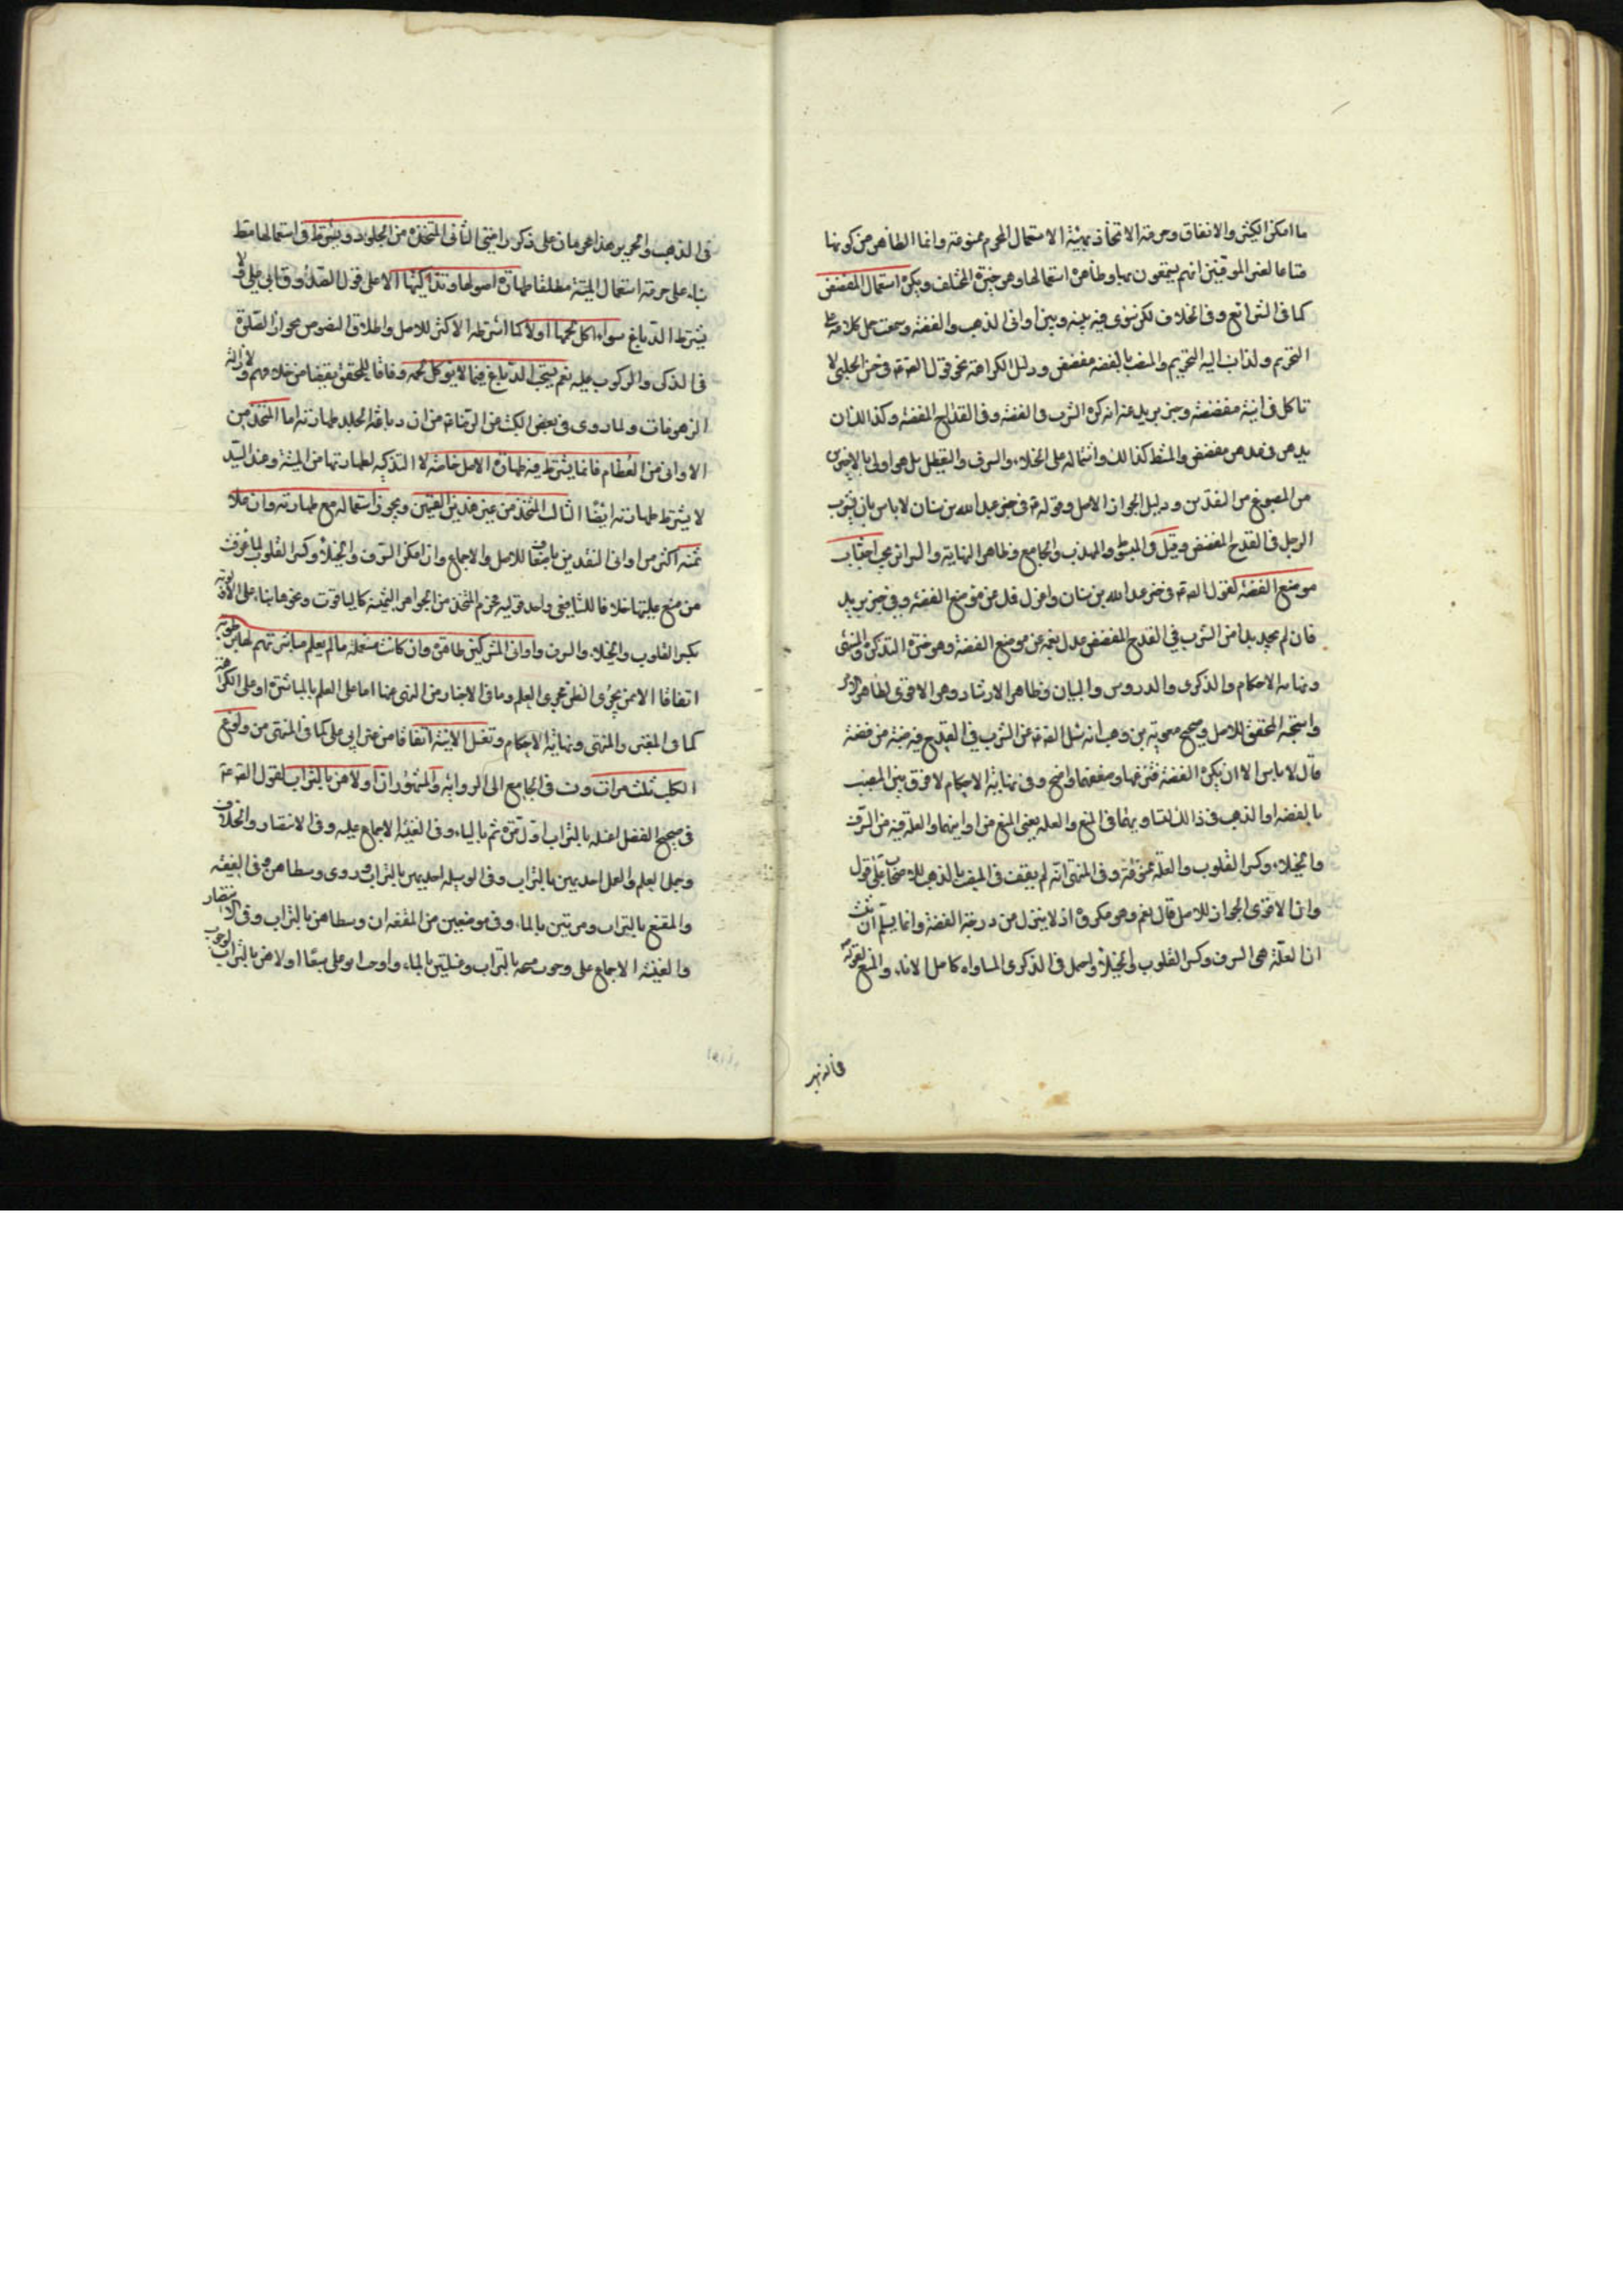 ما امكن الكسر والانفاق وحرمة الاتخاذ بهيئة الاستعمال المحرم ممنوعة وانما الظاهر من كونها
متاعا لغير الموقنين انهم يتمتعون بها وظاهره استعمالها وهو خيرة المختلف ويكره استعمال المفضض
كما في الشرائع وفي الخلاف لكن سوى فيه بينه وبين اواني الذهب والفضة وسمعت حمل كلامه على
التحريم ولذا نسب اليه التحريم والمضبب بالفضة مفضض ودليل الكراهة نحو قول الصادق في خبر الحلبي لا
تاكل في انية مفضضة وخبر بريد عنه انه كره الشرب في الفضة وفي القداح المفضضة وكذا ان
يدهن في مدهن مفضض والمشط كذلك واشتماله على الخلاء والسرف والتعطيل بل هو اولى بالاخيرين
من المصوغ من النقدين ودليل الجواز الاصل وقوله في خبر عبد الله بن سنان لا باس بان يشرب
الرجل في القدح المفضض وقيل في المبسوط والمهذب والجامع وظاهر النهاية والسرائر يجب اجتناب
موضع الفضة لقول الصادق في خبر عبد الله بن سنان واعزل فمك عن موضع الفضة وفي خبر بريد
فان لم يجد بدا من الشرب في القدح المفضض عدل بفمه عن موضع الفضة وهو خيرة التذكرة والمنتهى
ونهاية الاحكام والذكرى والدروس والبيان وظاهر الارشاد وهو الاقوى لظاهر الامر
واستحبه المحقق للاصل وصحيح معوية بن وهب انه سئل الصادق عن الشرب في القدح فيه ضبة من فضة
قال لا باس الا ان يكره الفضة فتنزعها وضعفهما واضح وفي نهاية الاحكام لا فرق بين المضبب
بالفضة او الذهب في ذلك لتساويهما في المنع والعلة يعني المنع من اوانيهما والعلة فيه من السرف
والخيلاء وكسر القلوب والعلة ممنوعة وفي المنتهى انه لم يقف في المضبب بالذهب للاصحاب على قول
وان الاقوى الجواز للاصل قال نعم هو مكروه اذ لا ينزل من درجة الفضة وانما يسلم ان ثبت
ان العلة هي السرف وكسر القلوب والخيلاء واحتمل في الذكرى المساواة كاصل الاناء والمنع لقوله
في الذهب والحرير هذان محرمان على ذكور امتي الثاني المتخذة من الجلود ويشترط في استعمالها مط
بناء على حرمة استعمال الميتة مطلقا طهارة اصولها وتذكيتها الا على قول الصدوق وابي علي لا
يشترط الدباغ سواء اكل لحمها اولا كما اشترطه الاكثر للاصل واطلاق النصوص بجواز الصلوة
في الذكي والركوب عليه نعم يستحب الدباغ فيما لا يؤكل لحمه وفاقا للمحقق تفصيا من خلافهم ولازالة
الزهومات ولما روى في بعض الكتب عن الرضا من ان دباغة الجلد طهارته اما المتخذ من
الاواني من العظام فانما يشترط فيه طهارة الاصل خاصة لا التذكية لطهارتها من الميتة وعند السيد
لا يشترط طهارته ايضا الثالث المتخذ من غير هذين القبيلين ويجوز استعماله مع طهارته وان غلا
ثمنه اكثر من اواني النقدين باضعاف للاصل والاجماع وان امكن السرف والخيلاء وكسر القلوب لما عرفت
من منع عليتها خلافا للشافعي في احد قوليه فحرم المتخذ من الجواهر الثمينة كالياقوت ونحوها بناء على الاولوية
بكسر القلوب والخيلاء والسرف واواني المشركين طاهرة وان كانت مستعملة ما لم يعلم مباشرتهم لها برطوبة
اتفاقا الا ممن يجري الظن مجرى العلم وما في الاخبار من النهي عنها اما على العلم بالمباشرة او على الكراهة
كما في المعتبر والمنتهى ونهاية الاحكام وتغسل الانية اتفاقا من غير ابي علي كما في المنتهى من ولوغ
الكلب ثلث مرات ونسب في الجامع الى الرواية والمشهور ان اولاهن بالتراب لقول الصادق
في صحيح الفضل اغسله بالتراب اول مرة ثم بالماء وفي الغنية الاجماع عليه وفي الانتصار والخلاف
وجمل العلم والعمل احديهن بالتراب وفي الوسيلة احديهن بالتراب وروى وسطاهن وفي الفقيه
والمقنع بالتراب ومرتين بالماء وفي موضعين من المقنعة ان وسطاهن بالتراب وفي الانتصار
والغنية الاجماع على وجوب مسحه بالتراب وغسلتين بالماء واوجب ابو علي سبعا اولاهن بالتراب لوجوب